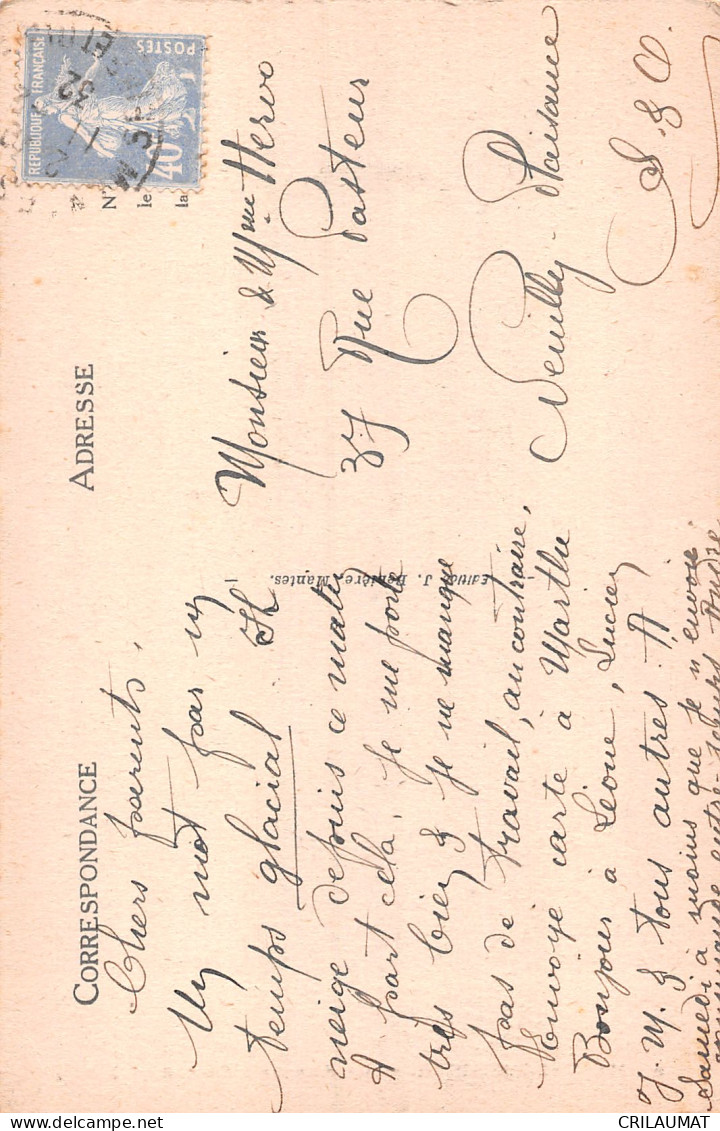 CORRESPONDANCE
Chers parents,
Un mot par un
temps glacial. Il
neige depuis ce matin
A part cela, je me porte
très bien & je ne manque
pas de travail, au contraire,
Envoyé carte à Marthe
Bonjour à Léone, Lucien
J. M. & tous autres. A
Samedi à moins que je n'envoie
André
Edition J. Mantes.
ADRESSE
N°
le
la
Monsieur & Mme Hervo
37 Rue Pasteur
Neuilly-Plaisance
S. & O.
REPUBLIQUE FRANÇAISE
POSTES
40c
32
CRILAUMAT